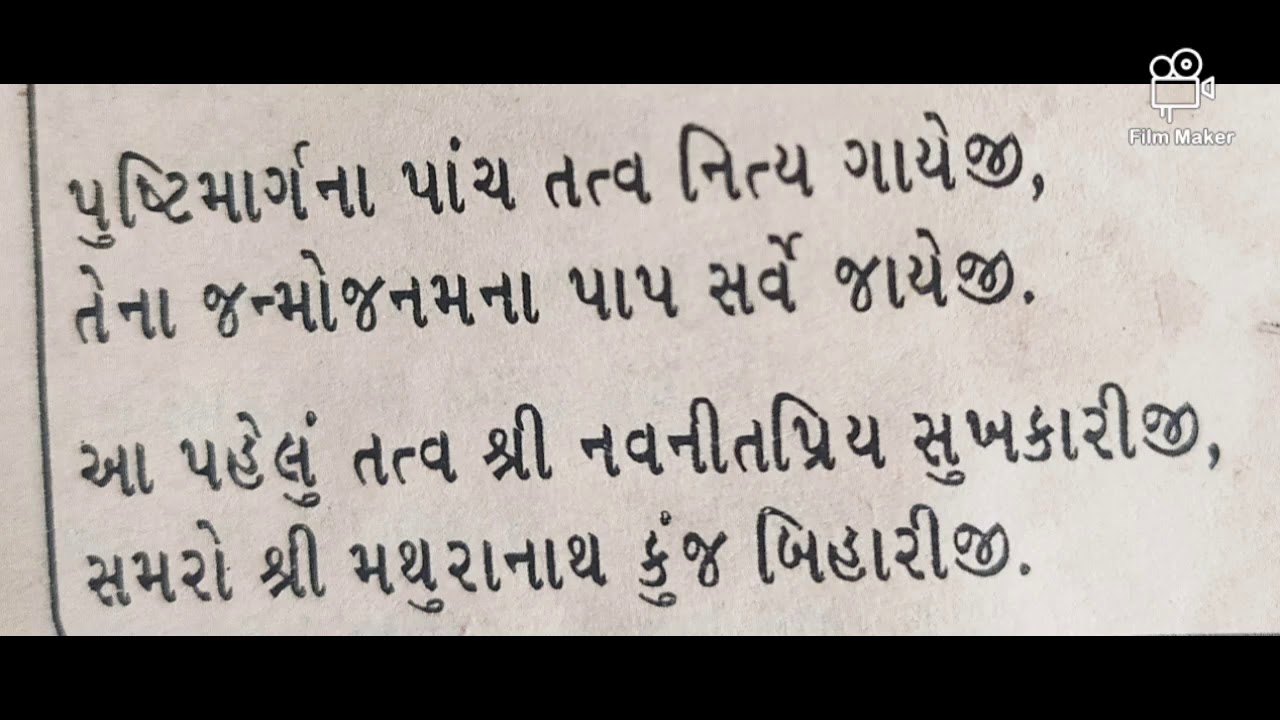 Film Maker
પુષ્ટિમાર્ગના પાંચ તત્વ નિત્ય ગાયેજી,
તેના જન્મોજનમના પાપ સર્વે જાયેજી.
આ પહેલું તત્વ શ્રી નવનીતપ્રિય સુખકારીજી,
સમરો શ્રી મથુરાનાથ કુંજ બિહારીજી.